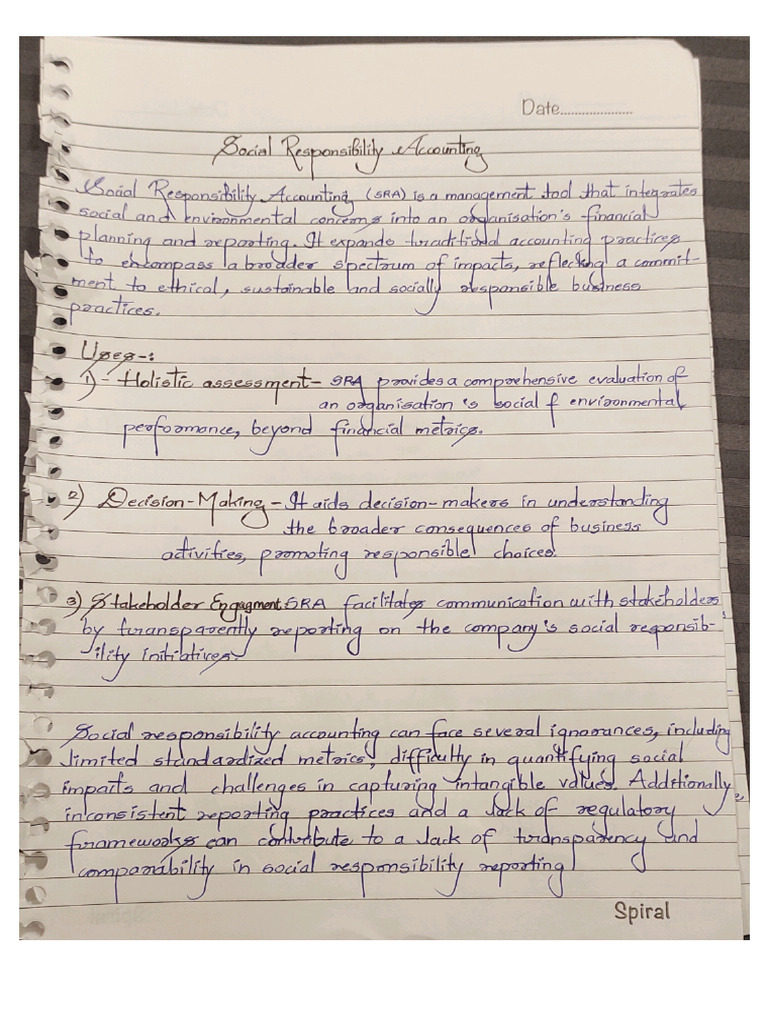 Date....................
Social Responsibility Accounting
Social Responsibility Accounting (SRA) is a management tool that integrates
social and environmental concerns into an organisation's financial
planning and reporting. It expands traditional accounting practices
to encompass a broader spectrum of impacts, reflecting a commit-
ment to ethical, sustainable and socially responsible business
practices.
Uses-:
1) - Holistic assessment - SRA provides a comprehensive evaluation of
an organisation's social & environmental
performance, beyond financial metrics.
2) Decision-Making - It aids decision-makers in understanding
the broader consequences of business
activities, promoting responsible choices.
3) Stakeholder Engagment. SRA facilitates communication with stakeholders
by transparently reporting on the company's social responsib-
ility initiatives.
Social responsibility accounting can face several ignorances, including
limited standardized metrics, difficulty in quantifying social
impacts and challenges in capturing intangible values. Additionally
inconsistent reporting practices and a lack of regulatory
frameworks can contribute to a lack of transparency and
comparability in social responsibility reporting
Spiral